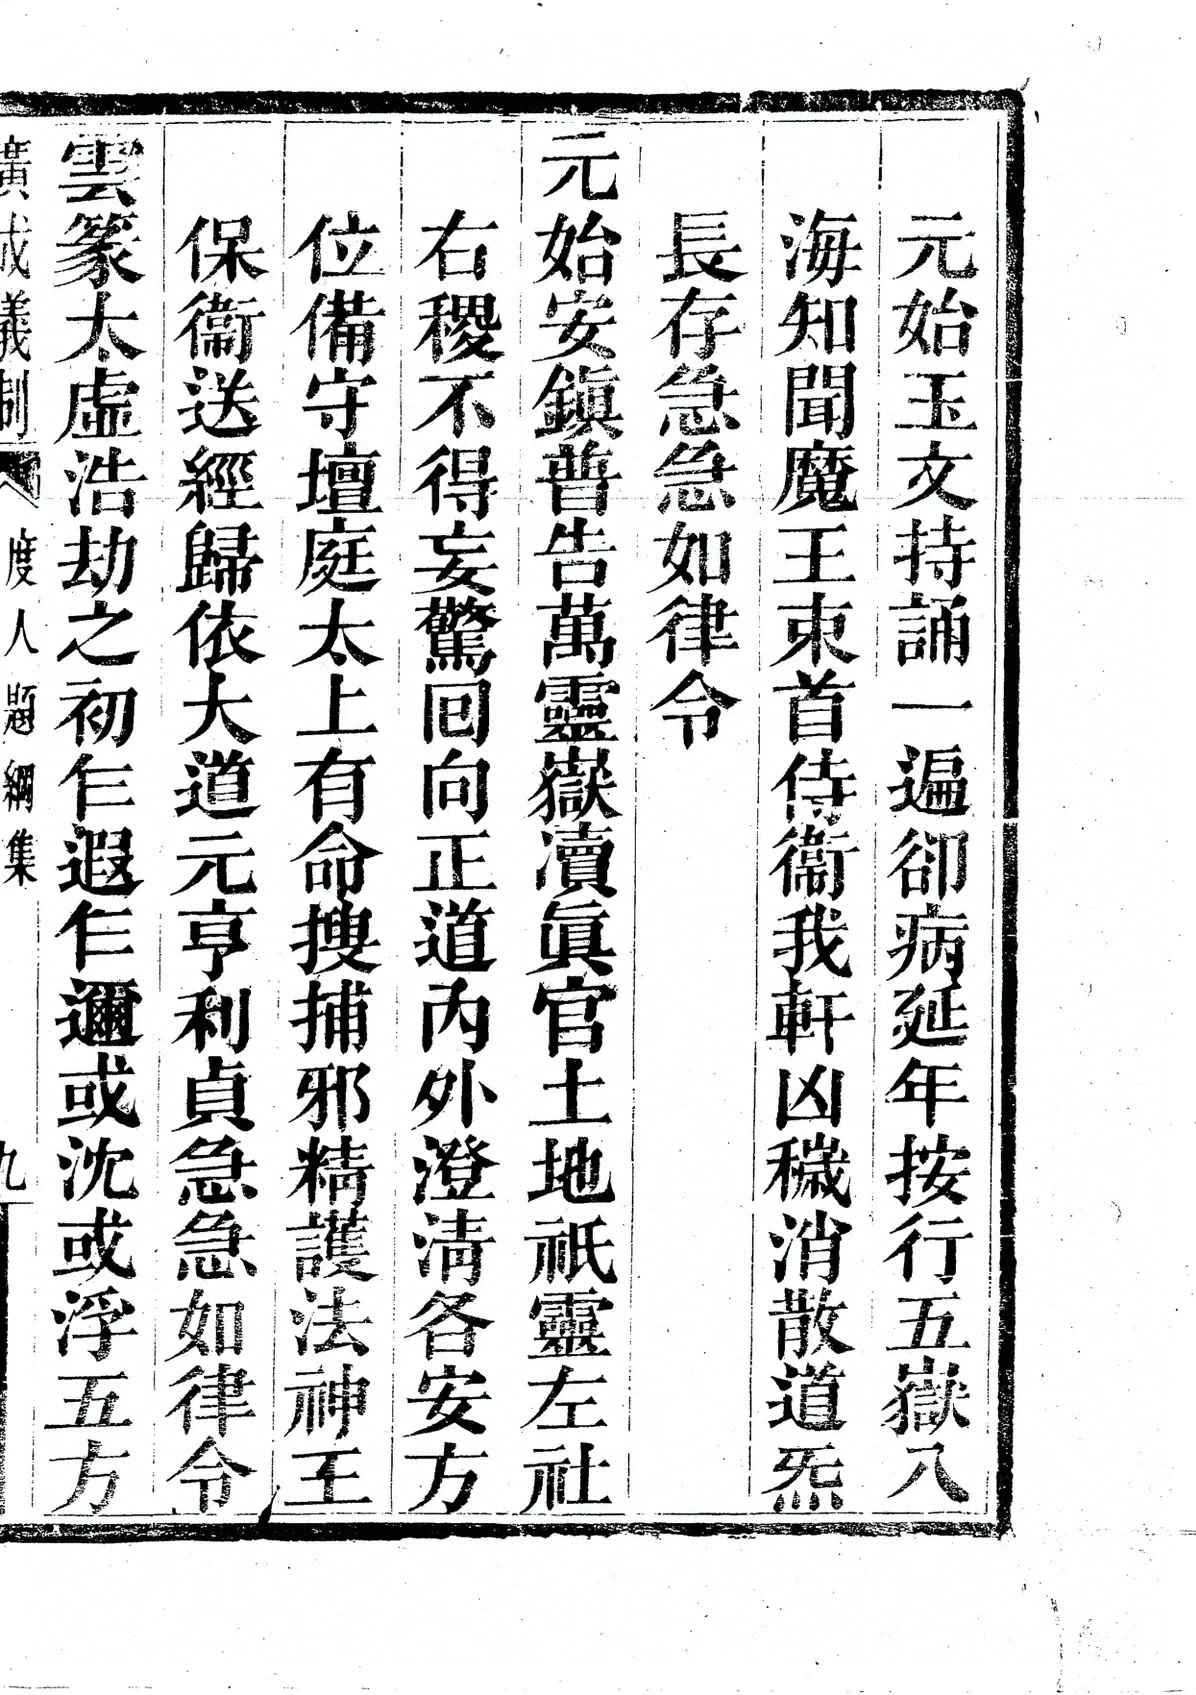 元始玉文持誦一遍卻病延年按行五嶽八
海知聞魔王束首侍衞我軒凶穢消散道炁
長存急急如律令
元始安鎮普告萬靈嶽瀆眞官土地祇靈左社
右稷不得妄驚回向正道內外澄淸各安方
位備守壇庭太上有命搜捕邪精護法神王
保衞送經歸依大道元亨利貞急急如律令
雲篆太虛浩劫之初乍遐乍邇或沈或浮五方
廣成儀制 度人題綱集 九